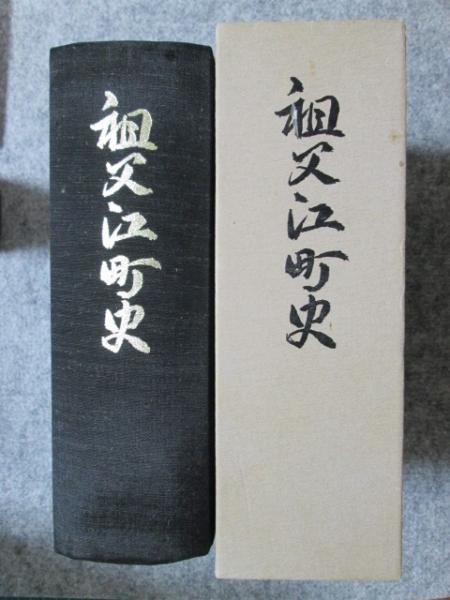 祖父江町史
祖父江町史